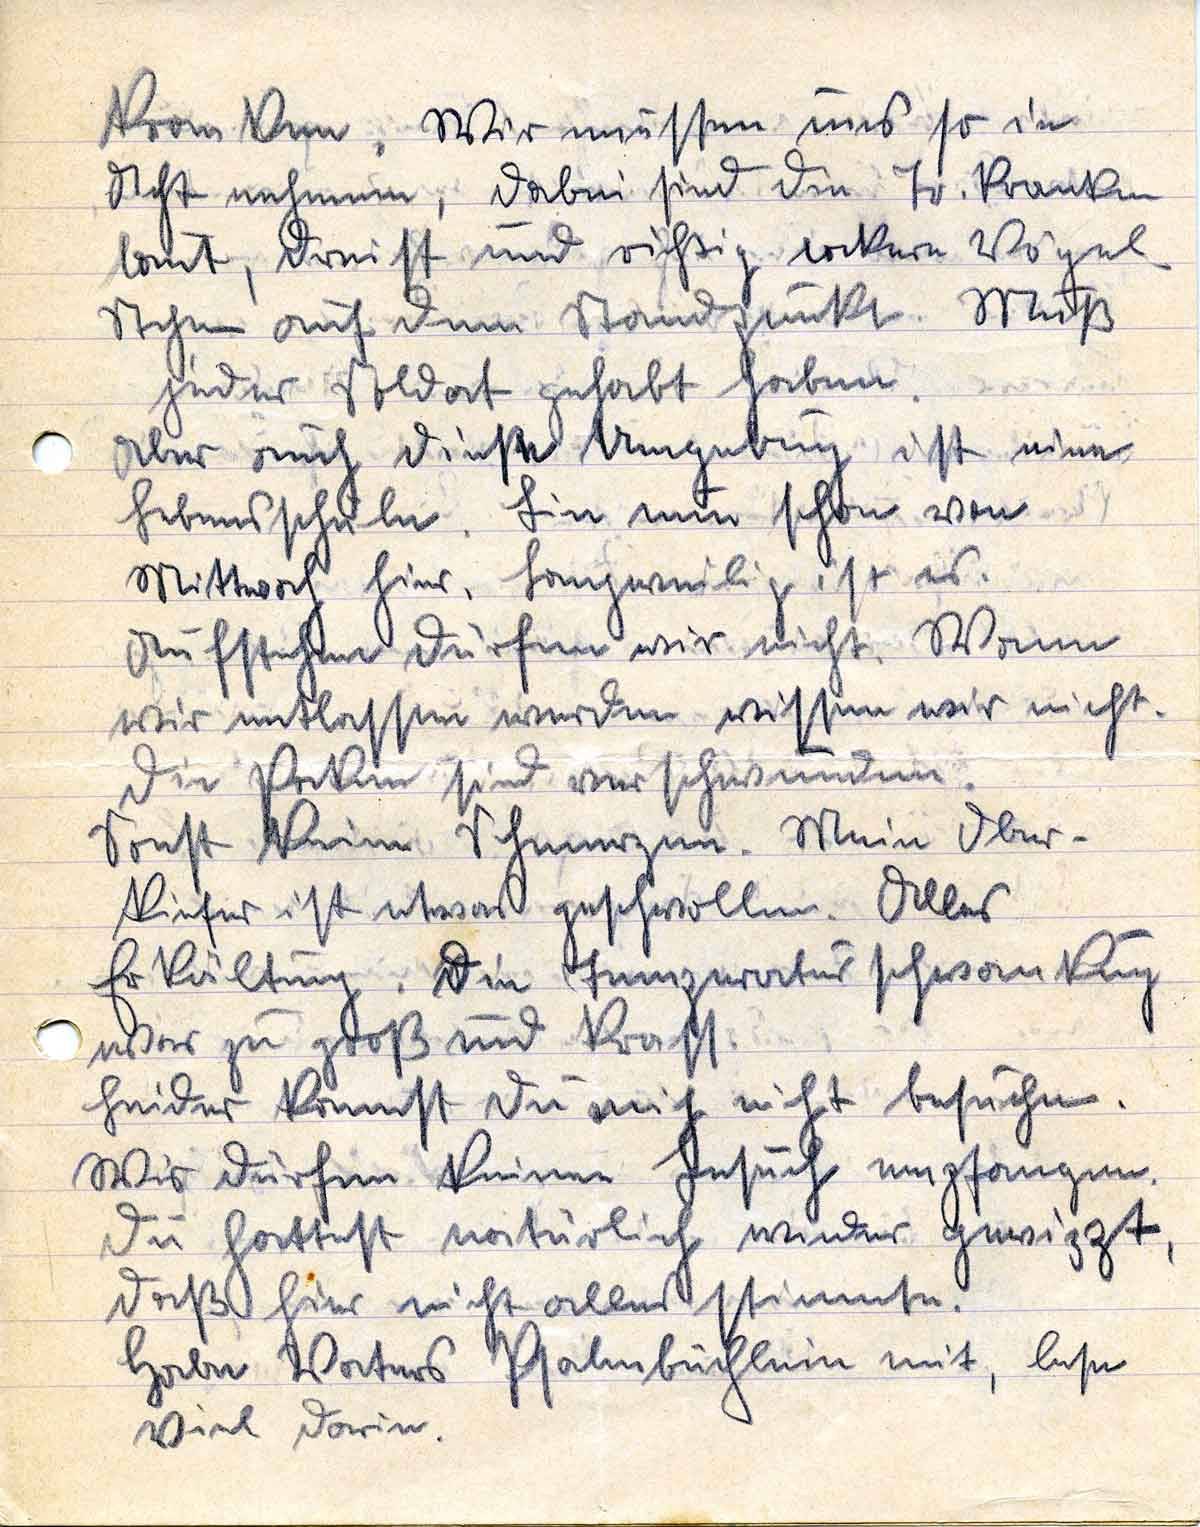 Kranken. Wir müssen uns so in
Acht nehmen, dabei sind die Tr. kranken
laut, dreist und richtig lockere Vögel
Stehen auf dem Standpunkt. Muß
jeder Soldat gehabt haben.
Aber auch diese Umgebung ist eine
Lebensschule. Bin nun schon von
Mittwoch hier. Langweilig ist es.
Aufstehen dürfen wir nicht. Wann
wir entlassen werden wissen wir nicht.
Die Pocken sind verschwunden.
Sonst keine Schmerzen. Mein Ober-
kiefer ist etwas geschwollen. Alles
Erkältung. Die Temperaturschwankung
war zu groß und krass.
Leider kannst du mich nicht besuchen.
Wir dürfen keinen Besuch empfangen.
Du hattest natürlich wieder
daß hier nicht alles stimmte.
Habe Vaters Psalmbüchlein mit, lese
viel darin.